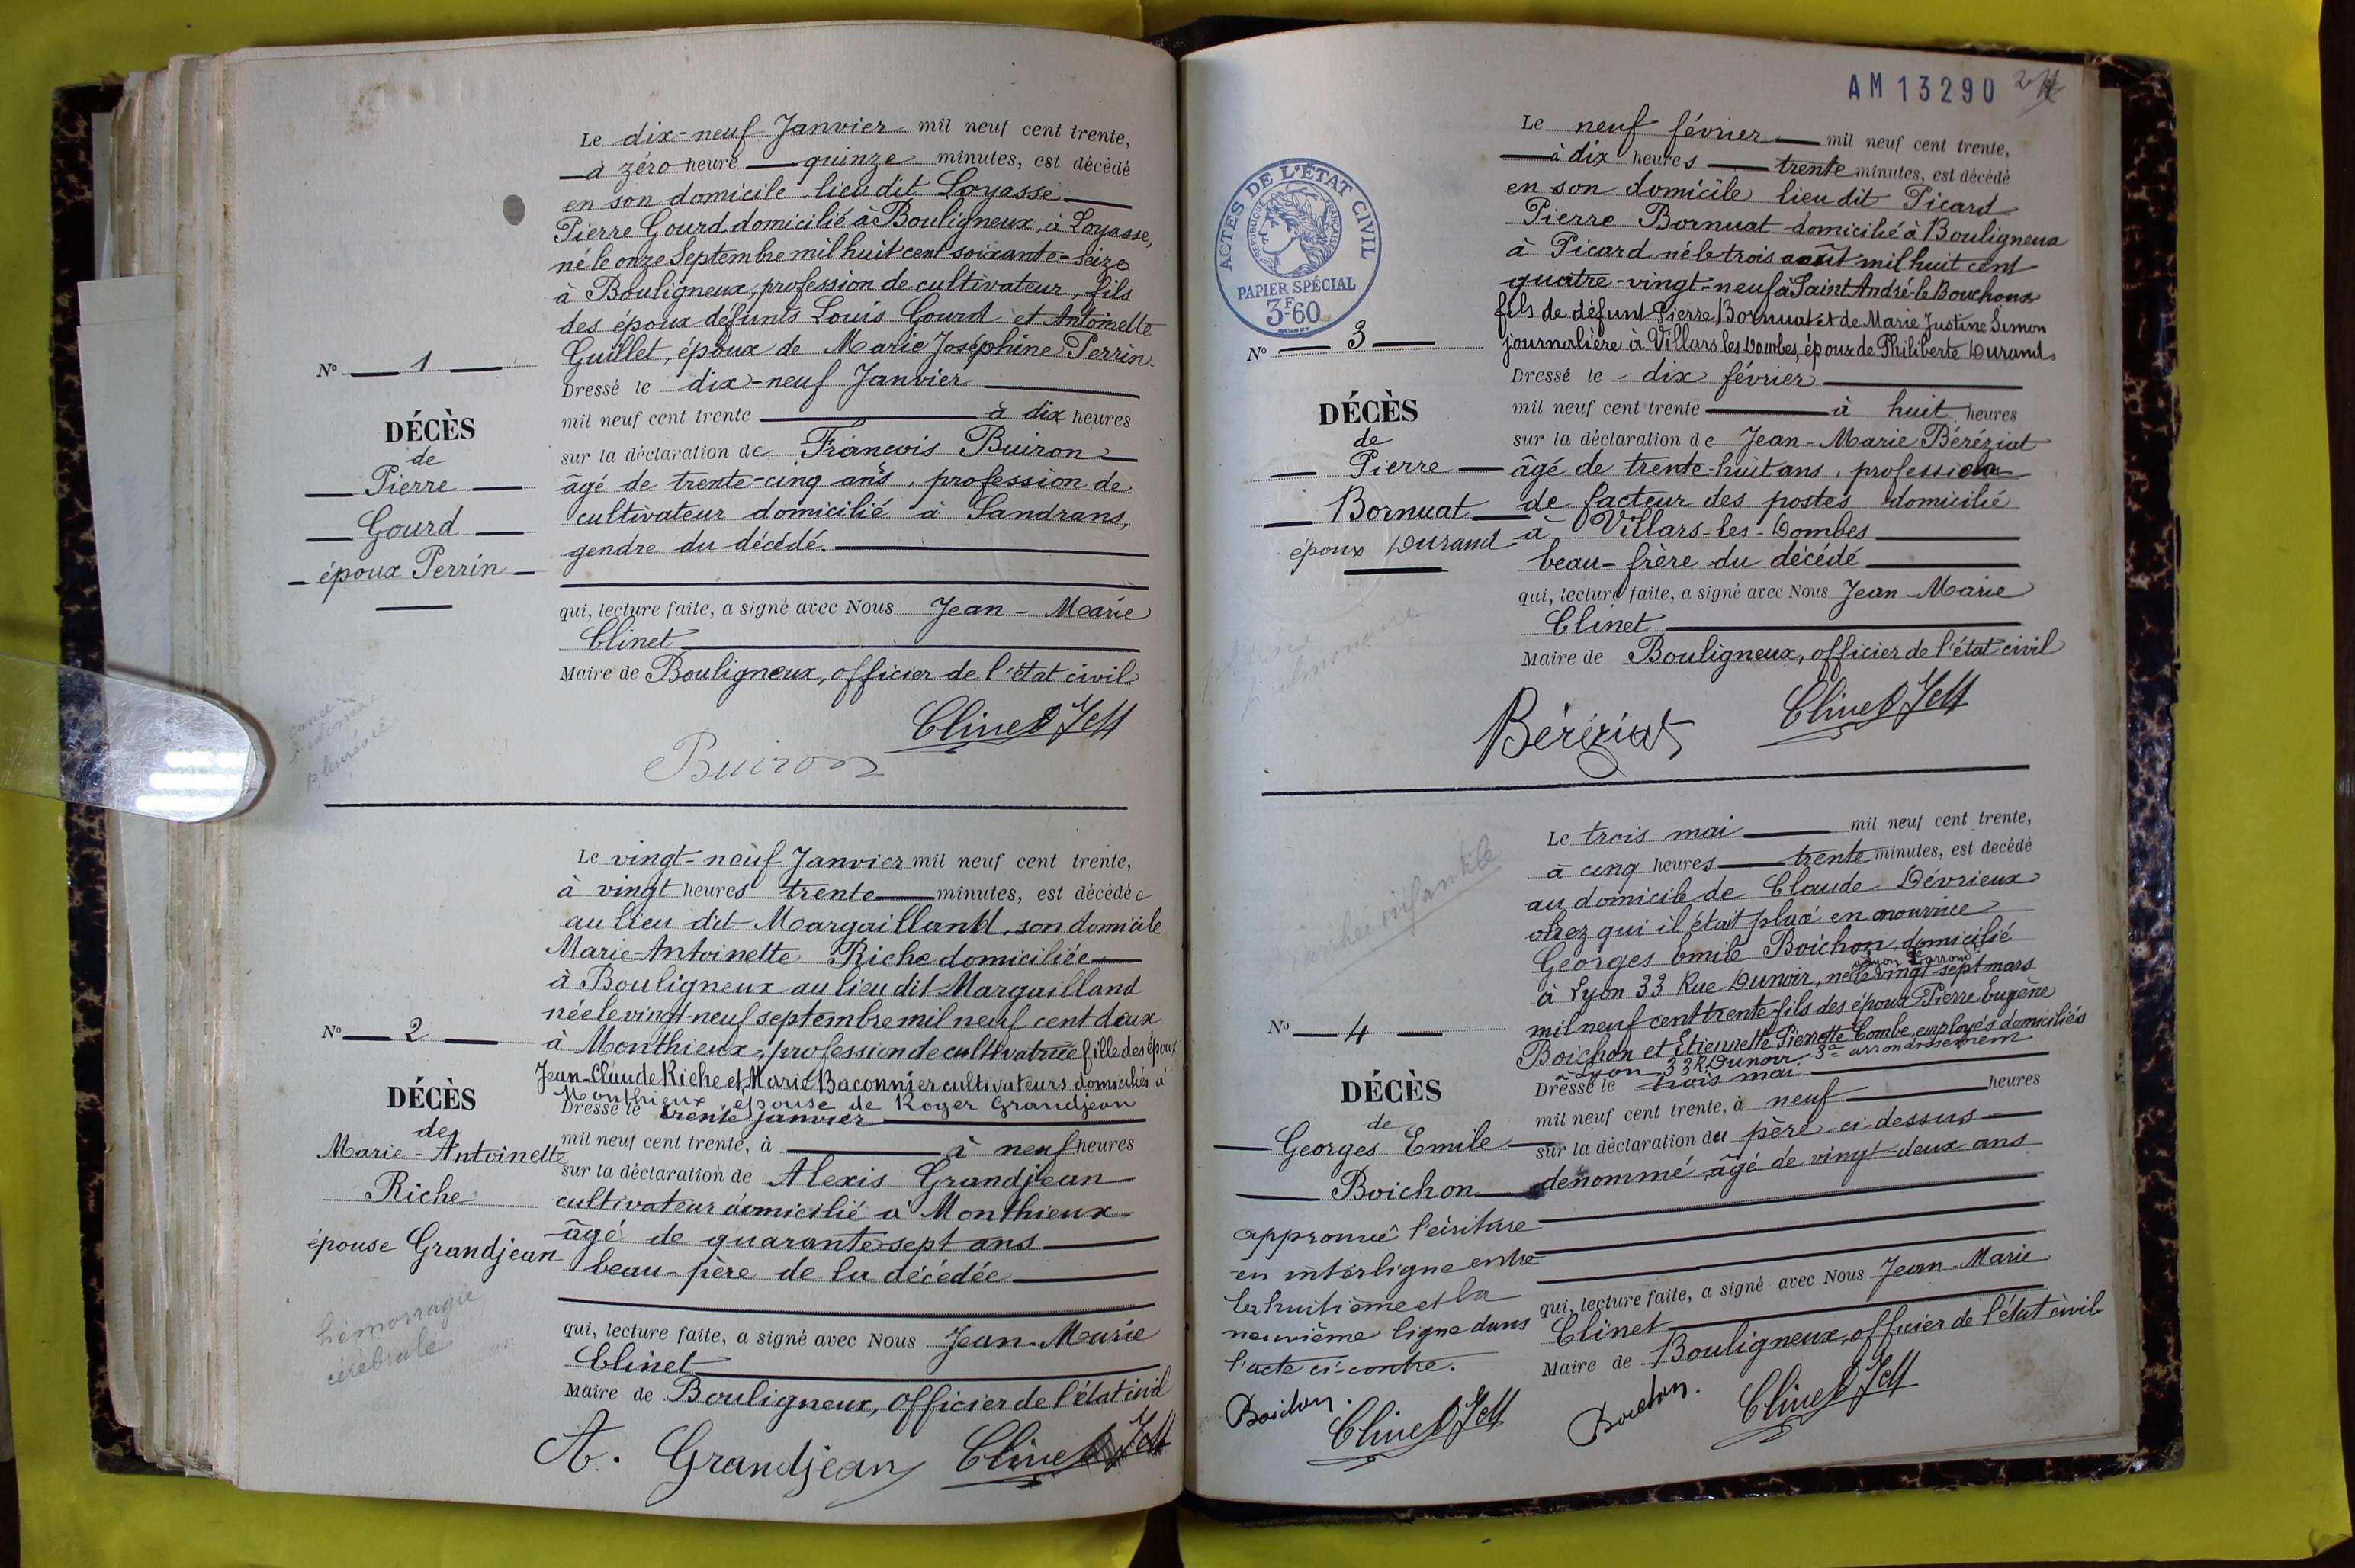 Le dix-neuf Janvier mil neuf cent trente,
à zéro heure quinze minutes, est décédé
en son domicile lieu dit Loyasse
Pierre Gourd domicilié à Bouligneux, à Loyasse,
né le onze Septembre mil huit cent soixante-seize
à Bouligneux, profession de cultivateur, fils
des époux défunts Louis Gourd et Antoinette
Guillet, époux de Marie Joséphine Perrin.
N° 1
Dressé le dix-neuf Janvier
mil neuf cent trente à dix heures
DÉCÈS
de
Pierre
Gourd
époux Perrin
sur la déclaration de François Buiron
âgé de trente-cinq ans, profession de
cultivateur domicilié à Sandrans,
gendre du décédé.
qui, lecture faite, a signé avec Nous Jean-Marie
Clinet
Maire de Bouligneux, officier de l'état civil
pleurésie
Buiron
Clinet JM
Le vingt-neuf Janvier mil neuf cent trente,
à vingt heures trente minutes, est décédée
au lieu dit Margailland, son domicile
Marie-Antoinette Riche domiciliée
à Bouligneux au lieu dit Margailland
née le vingt-neuf septembre mil neuf cent deux
à Monthieux, profession de cultivatrice fille des époux
Jean-Claude Riche et Marie Baconnier cultivateurs domiciliés à
Monthieux, épouse de Roger Grandjean
N° 2
Dressé le trente janvier
mil neuf cent trente, à à neuf heures
DÉCÈS
de
Marie-Antoinette
Riche
épouse Grandjean
hémorragie
cérébrale
sur la déclaration de Alexis Grandjean
cultivateur domicilié à Monthieux
âgé de quarante sept ans
beau-père de la décédée
qui, lecture faite, a signé avec Nous Jean-Marie
Clinet
Maire de Bouligneux, officier de l'état civil
A. Grandjean
Clinet JM
AM 13290
ACTES DE L'ÉTAT CIVIL
RÉPUBLIQUE FRANÇAISE
PAPIER SPÉCIAL
3F60
Le neuf février mil neuf cent trente,
à dix heures trente minutes, est décédé
en son domicile lieu dit Picard
Pierre Bornuat domicilié à Bouligneux
à Picard né le trois août mil huit cent
quatre-vingt-neuf à Saint André-le Bouchoux
fils de défunt Pierre Bornuat et de Marie Justine Simon
journalière à Villars les Dombes, époux de Philiberte Durand
N° 3
Dressé le dix février
mil neuf cent trente à huit heures
DÉCÈS
de
Pierre
Bornuat
époux Durand
sur la déclaration de Jean-Marie Béréziat
âgé de trente-huit ans, profession
de facteur des postes domicilié
à Villars-les-Dombes
beau-frère du décédé
qui, lecture faite, a signé avec Nous Jean-Marie
Clinet
Maire de Bouligneux, officier de l'état civil
pulmonaire
Béréziat
Clinet JM
Le trois mai mil neuf cent trente,
à cinq heures trente minutes, est décédé
au domicile de Claude Dévrieux
chez qui il était placé en nourrice
Georges Emile Boichon domicilié
à Lyon 33 Rue Dunoir, né le vingt-sept mars
mil neuf cent trente fils des époux Pierre Eugène
Boichon et Etiennette Pierrette Combe employés domiciliés
à Lyon 33 R. Dunoir 3e arrondissement
N° 4
Dressé le trois mai
mil neuf cent trente, à neuf heures
infantile
DÉCÈS
de
Georges Emile
Boichon
sur la déclaration du père ci-dessus
dénommé âgé de vingt-deux ans
approuvé l'écriture
en interligne entre
la huitième et la
neuvième ligne dans
l'acte ci-contre.
qui, lecture faite, a signé avec Nous Jean-Marie
Clinet
Maire de Bouligneux, officier de l'état civil
Boichon.
Clinet JM
Boichon.
Clinet JM